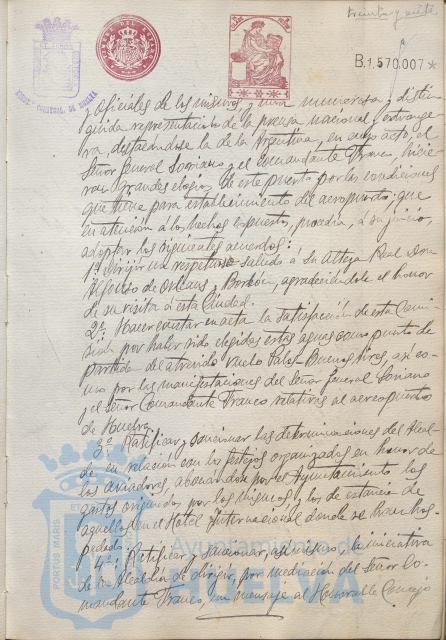 treinta y siete
B.1,570,007*
y Oficiales de los mismos y una numerosa y distin-
guida representación de la prensa nacional y extranje-
ra, destacándose la de la Argentina, en cuyo acto, el
Señor General Soriano y el Comandante Franco, hicie-
ron grandes elogios de este puerto por las condiciones
que tiene para establecimiento de aeropuerto; que
en atención a los hechos expuestos, procedía, a su juicio,
adoptar los siguientes acuerdos:
1º Dirigir un respetuoso saludo á su Alteza Real Don
Alfonso de Orleans y Borbón, agradeciéndole el honor
de su visita á esta Ciudad.
2º Hacer constar en acta la satisfacción de esta Comi-
sión por haber sido elegidas estas aguas como punto de
partida del atrevido vuelo Palos-Buenos Aires, así co-
mo por las manifestaciones del Señor General Soriano
y el Señor Comandante Franco relativas al aereopuerto
de Huelva.
3º Ratificar y sancionar las determinaciones del Alcal-
de en relación con los festejos organizados en honor de
los aviadores, abonándose por el Ayuntamiento los
gastos originados por los mismos y los de estancia de
aquellos en el Hotel Internacional donde se han hos-
pedado.
4º Ratificar y sancionar, asi mismo, la iniciativa
de la Alcaldía de dirigir, por mediación del Señor Co-
mandante Franco, un mensaje al Honorable Concejo
PORTUS MARIS
Ayuntamiento de
HUELVA